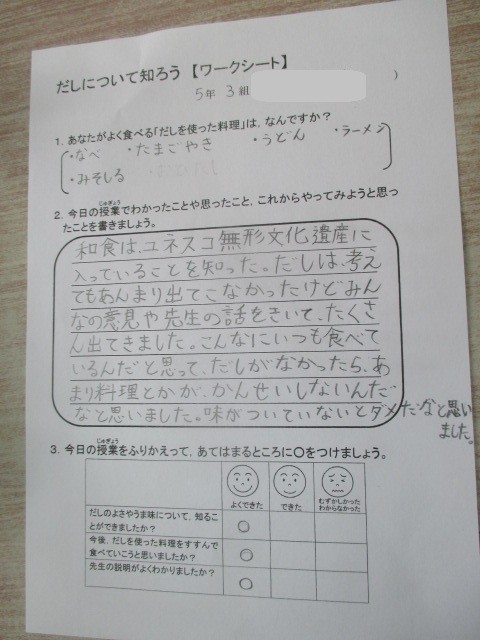 だしについて知ろう 【ワークシート】
5年 3組 )
1. あなたがよく食べる「だしを使った料理」は、なんですか?
・なべ ・たまごやき ・うどん ・ラーメン
・みそしる
2. 今日の授業でわかったことや思ったこと、これからやってみようと思っ
たことを書きましょう。
和食は、ユネスコ無形文化遺産に
入っていることを知った。だしは、考え
てもあんまり出てこなかったけどみん
なの意見や先生の話をきいて、たくさ
ん出てきました。こんなにいつも食べて
いるんだと思って、だしがなかったら、あ
まり料理とかが、かんせいしないんだ
なと思いました。味がついていないとダメだなと思い
ました。
3. 今日の授業をふりかえって、あてはまるところに○をつけましょう。
よくできた できた むずかしかった
わからなかった
だしのよさやうま味について、知るこ
とができましたか? ○
今後、だしを使った料理をすすんで
食べていこうと思いましたか? ○
先生の説明がよくわかりましたか? ○